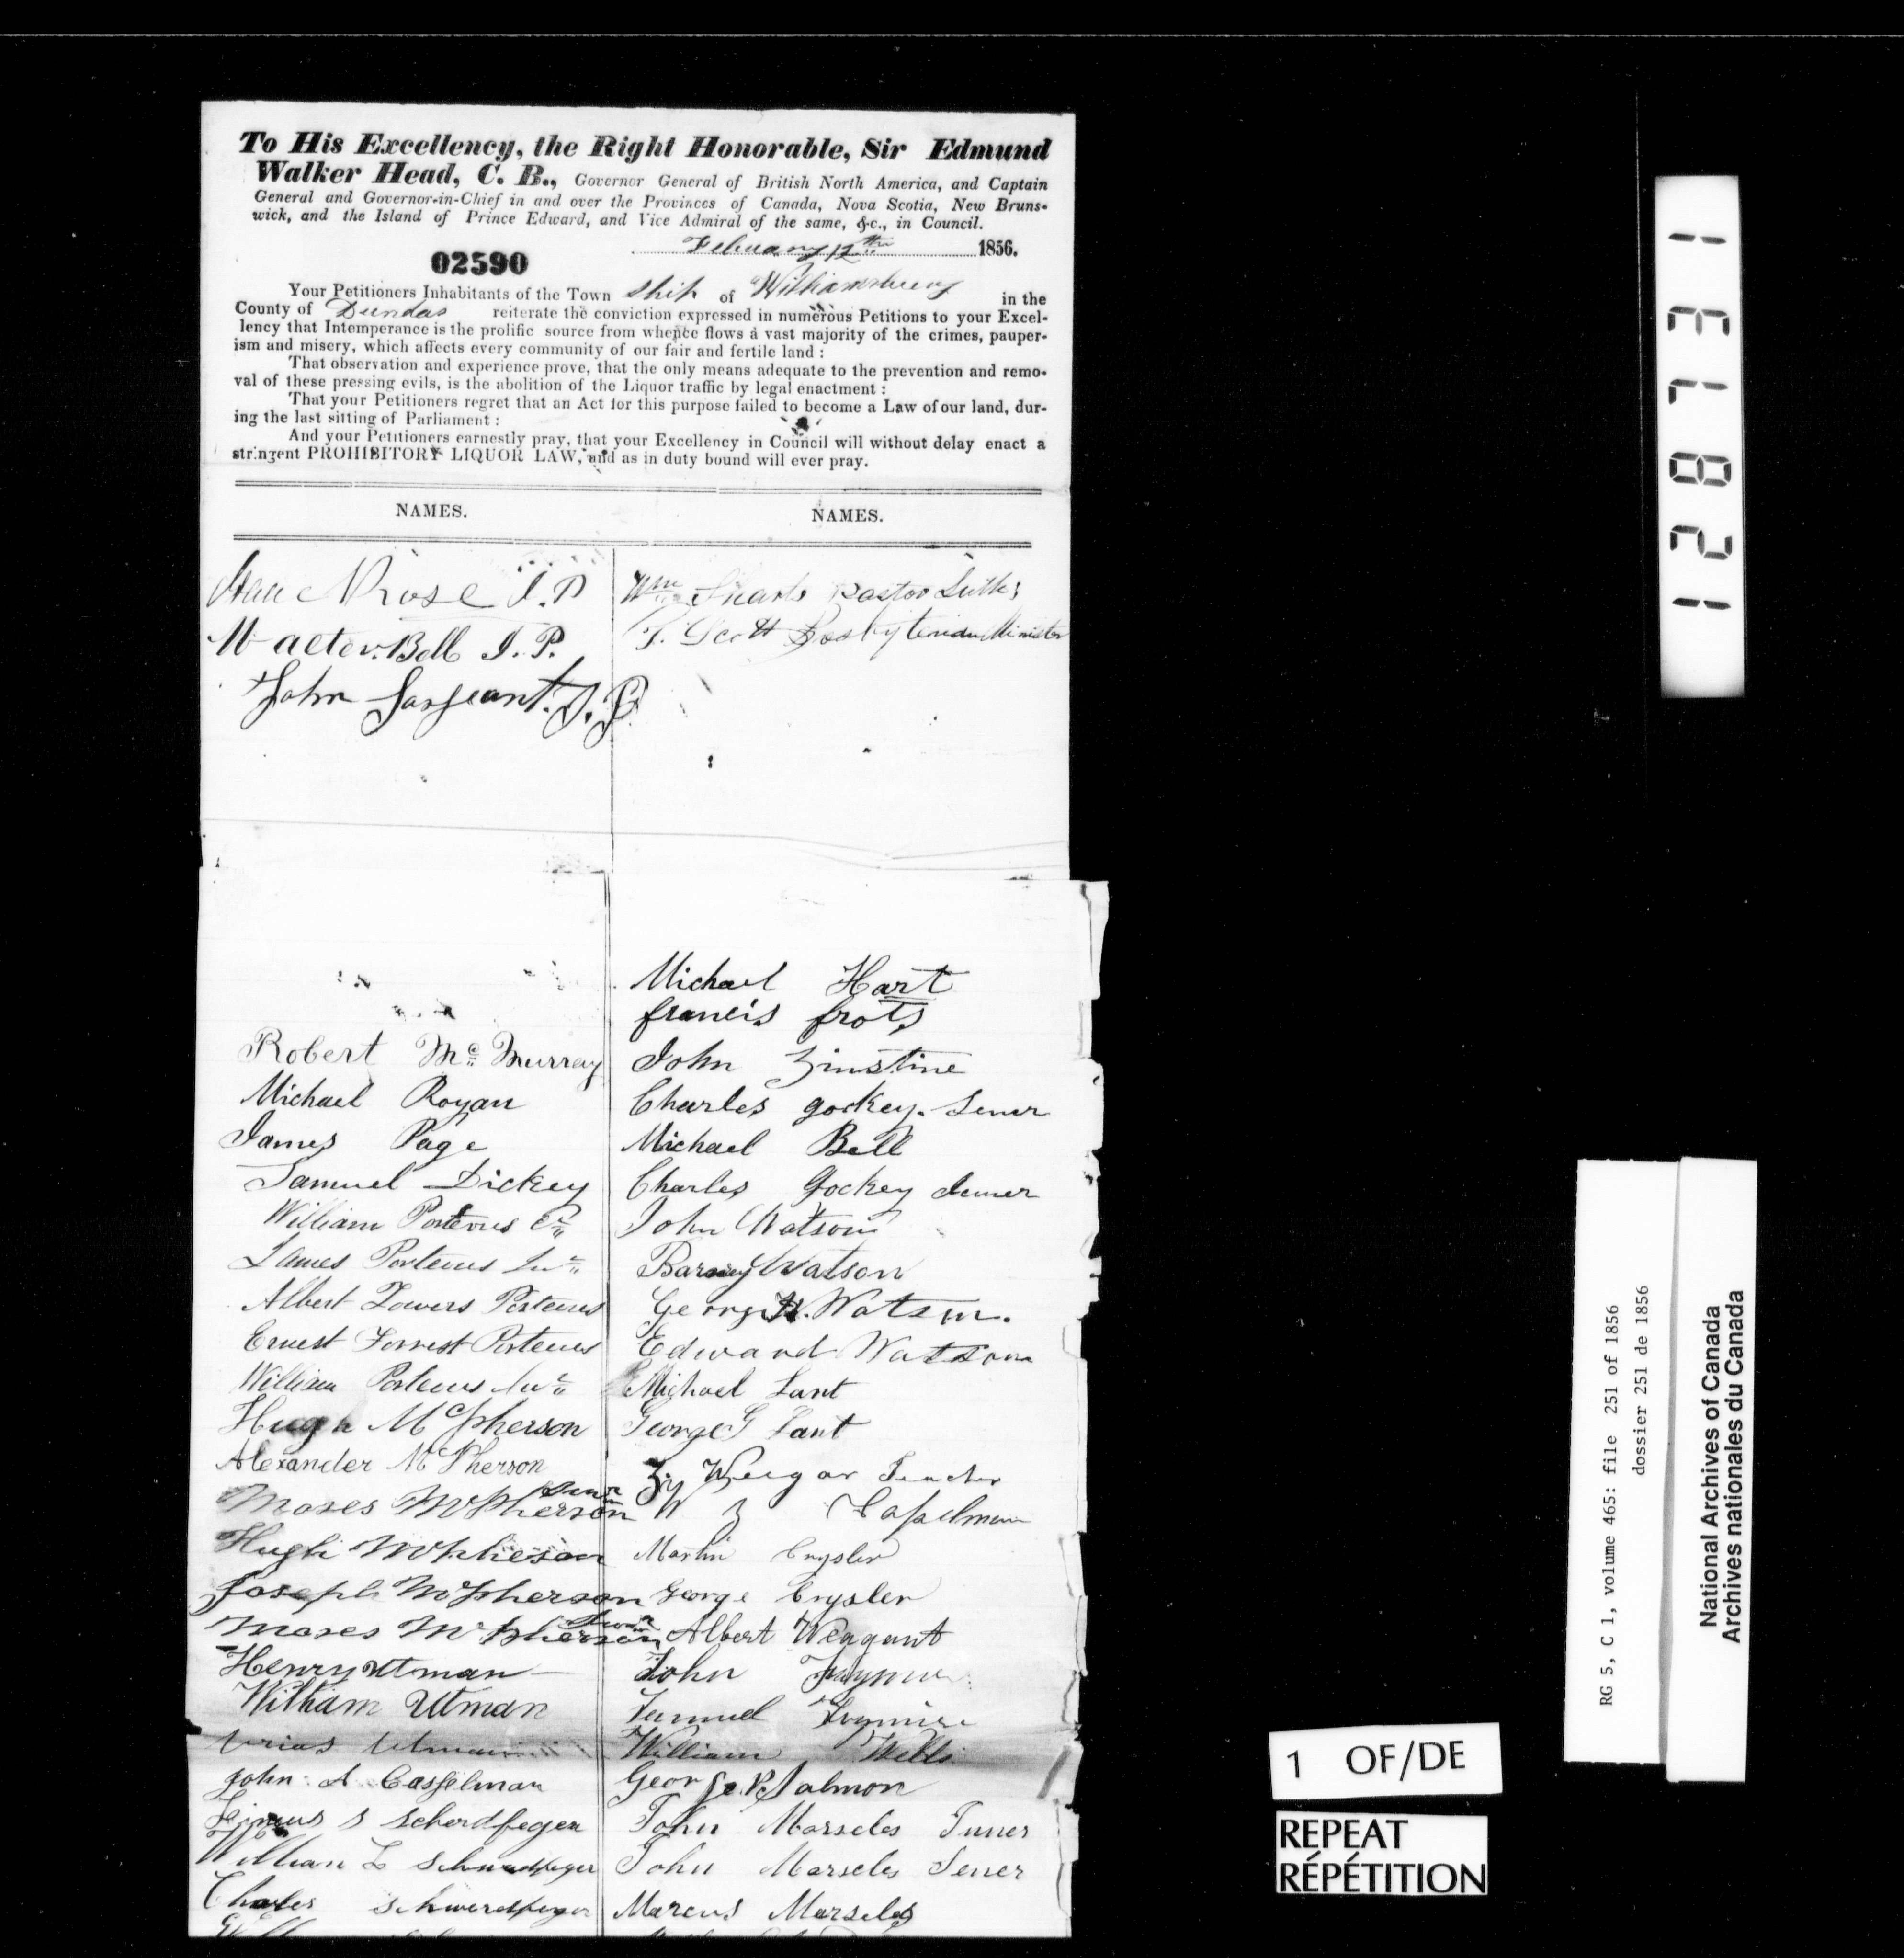 To His Excellency, the Right Honorable, Sir Edmund
Walker Head, C. B., Governor General of British North America, and Captain
General and Governor-in-Chief in and over the Provinces of Canada, Nova Scotia, New Bruns-
wick, and the Island of Prince Edward, and Vice Admiral of the same, &c., in Council.
February 12th 1856.
02590
Your Petitioners Inhabitants of the Town ship of Williamsburg in the
County of Dundas reiterate the conviction expressed in numerous Petitions to your Excel-
lency that Intemperance is the prolific source from whence flows a vast majority of the crimes, pauper-
ism and misery, which affects every community of our fair and fertile land :
That observation and experience prove, that the only means adequate to the prevention and remo-
val of these pressing evils, is the abolition of the Liquor traffic by legal enactment :
That your Petitioners regret that an Act for this purpose failed to become a Law of our land, dur-
ing the last sitting of Parliament :
And your Petitioners earnestly pray, that your Excellency in Council will without delay enact a
stringent PROHIBITORY LIQUOR LAW, and as in duty bound will ever pray.
NAMES.
Isaac N Rose J.P
Walter Bell J.P.
John Sargeant. J.P.
Robert Mc Murray
Michael Royan
James Page
Samuel Dickey
William Porteus
James Porteus Junr
Albert Towers Porteus
Ernest Forrest Porteus
William Porteus Junr
Hugh McPherson
Alexander McPherson
Moses McPherson
Hugh McPherson
Joseph McPherson
Moses McPherson
Henry Utman
William Utman
Urias Utman
John A Casselman
S Scherdfeger
William L Schwerdfeger
Charles Schwerdfeger
NAMES.
Wm Pastor Luth
Scott Presbyterian Minister
Michael Hart
francis frots
John Zinstine
Charles gockey. Sener
Michael Bell
Charles Gockey Juner
John Watson
Barney Watson
George W. Watson.
Edward Watson
Michael Lant
George G Lant
Teacher
W Z Casselman
Martin Crysler
George Crysler
Albert Weagant
John
Samuel
William Wells
George P. Salmon
John Marseles Juner
John Marseles Sener
Marcus Marseles
1 2 8 7 3 1
RG 5, C 1, volume 465: file 251 of 1856
dossier 251 de 1856
National Archives of Canada
Archives nationales du Canada
1 OF/DE
REPEAT
RÉPÉTITION